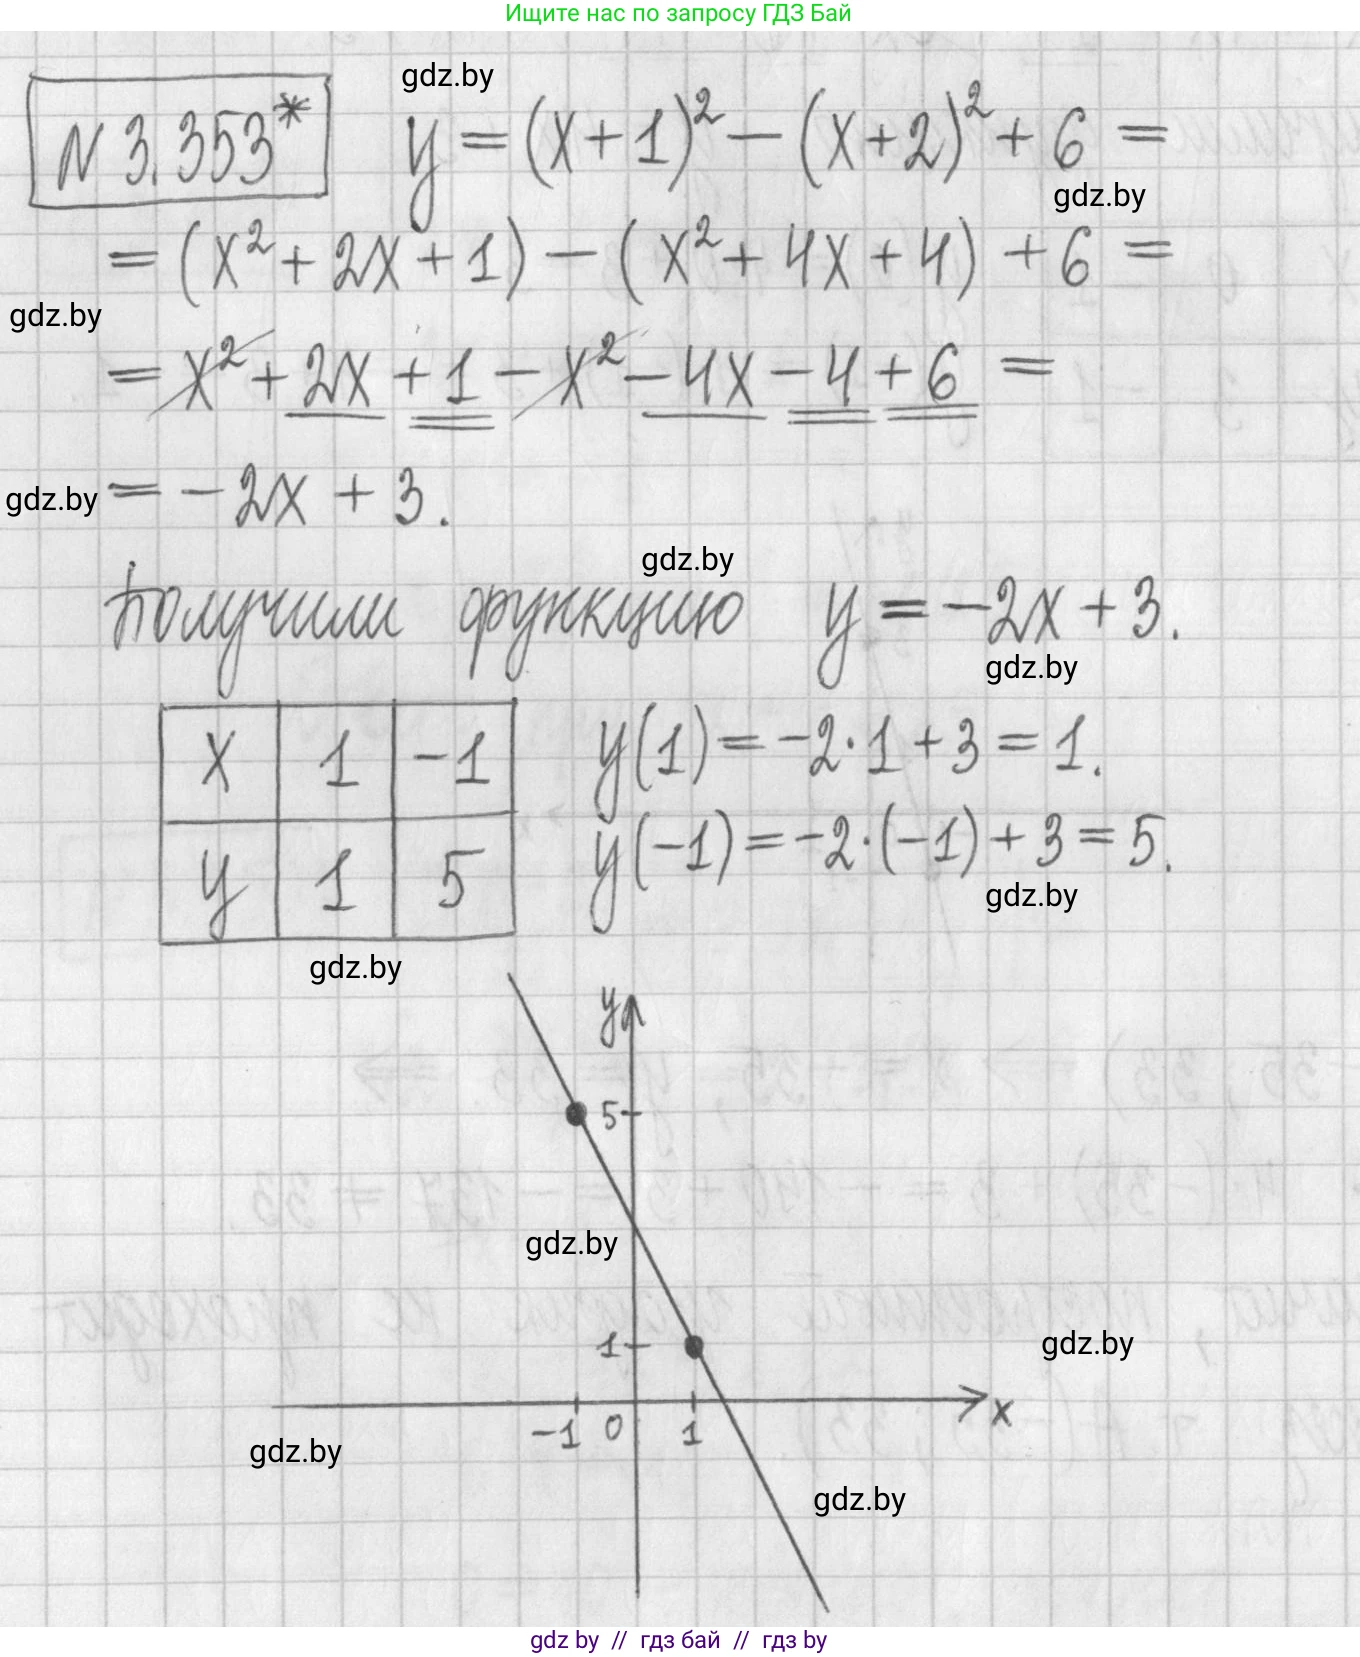 Ищите нас по запросу ГДЗ Бай
gdz.by
N 3.353* y = (x+1)² − (x+2)² + 6 =
gdz.by
= (x² + 2x + 1) − (x² + 4x + 4) + 6 =
gdz.by
= x² + 2x + 1 − x² − 4x − 4 + 6 =
gdz.by = −2x + 3.
gdz.by
Получили функцию y = −2x + 3.
gdz.by
x 1 −1 y(1) = −2·1 + 3 = 1.
y 1 5 y(−1) = −2·(−1) + 3 = 5.
gdz.by
gdz.by
y
5
gdz.by
1
gdz.by
−1 0 1 x
gdz.by
gdz.by
gdz by // гдз бай // гдз by